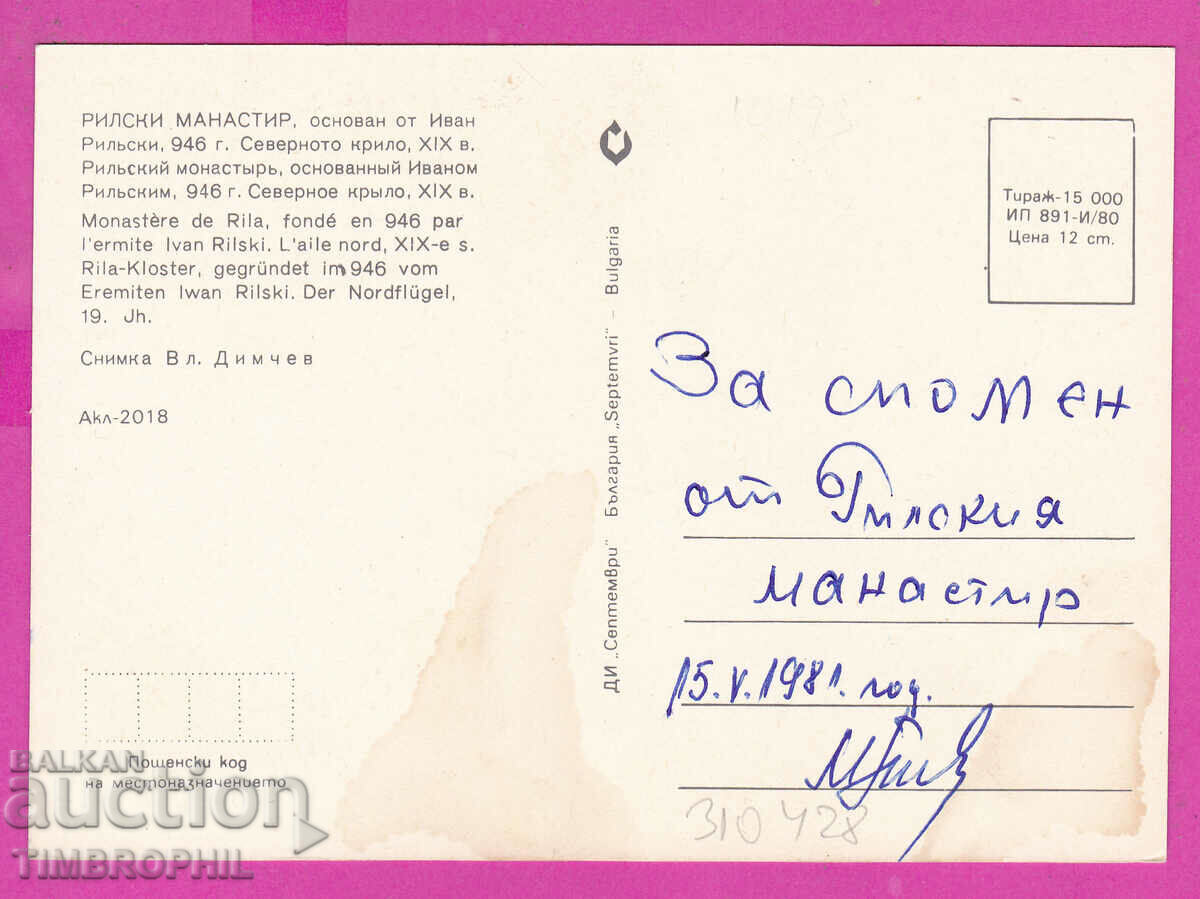 РИЛСКИ МАНАСТИР, основан от Иван
Рилски, 946 г. Северното крило, XIX в.
Рильский монастырь, основанный Иваном
Рильским, 946 г. Северное крыло, XIX в.
Monastère de Rila, fondé en 946 par
l'ermite Ivan Rilski. L'aile nord, XIX-e s.
Rila-Kloster, gegründet im 946 vom
Eremiten Iwan Rilski. Der Nordflügel,
19. Jh.
Снимка Вл. Димчев
Акл-2018
Пощенски код
на местоназначението
ДИ „Септември" България „Septemvri" – Bulgaria
Тираж-15 000
ИП 891-И/80
Цена 12 ст.
За спомен
от Рилския
манастир
15.V.1981. год.
310428
BALKAN
auction
TIMBROPHIL